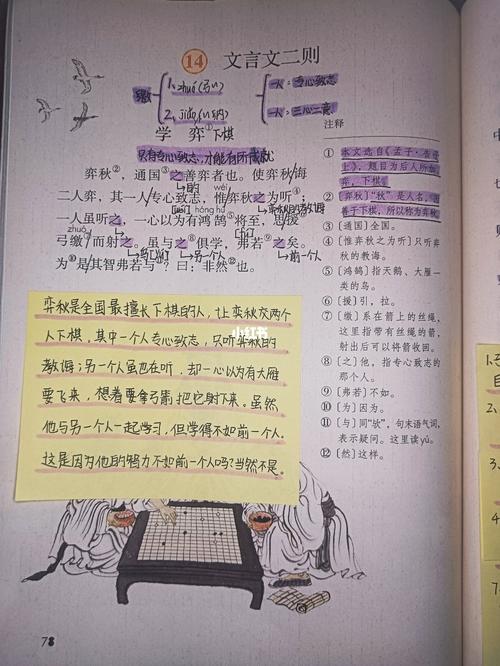 14 文言文二则
缴 1、zhuó(弓缴)
2、jiǎo(缴纳)
一人：专心致志
一人：三心二意
学 弈①下棋
只有专心致志，才能有所成就
弈秋②，通国③之善弈者也。使弈秋诲
的
wéi
二人弈，其一人专心致志，惟弈秋之为听④；
弈秋的教诲
hóng hú
一人虽听之，一心以为有鸿鹄⑤将至，思援⑥
zhuó
弓缴⑦而射之。虽与之⑧俱学，弗若⑨之矣。
前一个人
前一个人
为⑩是其智弗若与⑪？曰：非然⑫也。
弈秋是全国最擅长下棋的人，让弈秋教两个
人下棋，其中一个人专心致志，只听弈秋的
教诲；另一个人虽也在听，却一心以为有大雁
要飞来，想着要拿弓箭把它射下来。虽然
他与另一个人一起学习，但学得不如前一个人。
这是因为他的智力不如前一个人吗？当然不是。
小红书
注释
① 本文选自《孟子·告子
上》，题目为后人所加。
弈，下棋。
② 〔弈秋〕“秋”是人名，因
善于下棋，所以称为弈秋。
③ 〔通国〕全国。
④ 〔惟弈秋之为听〕只听弈
秋的教诲。
⑤ 〔鸿鹄〕指天鹅、大雁一
类的鸟。
⑥ 〔援〕引，拉。
⑦ 〔缴〕系在箭上的丝绳，
这里指带有丝绳的箭，
射出后可以将箭收回。
⑧ 〔之〕他，指专心致志的
那个人。
⑨ 〔弗若〕不如。
⑩ 〔为〕因为。
⑪ 〔与〕同“欤”，句末语气词，
表示疑问。这里读yú。
⑫ 〔然〕这样。
78